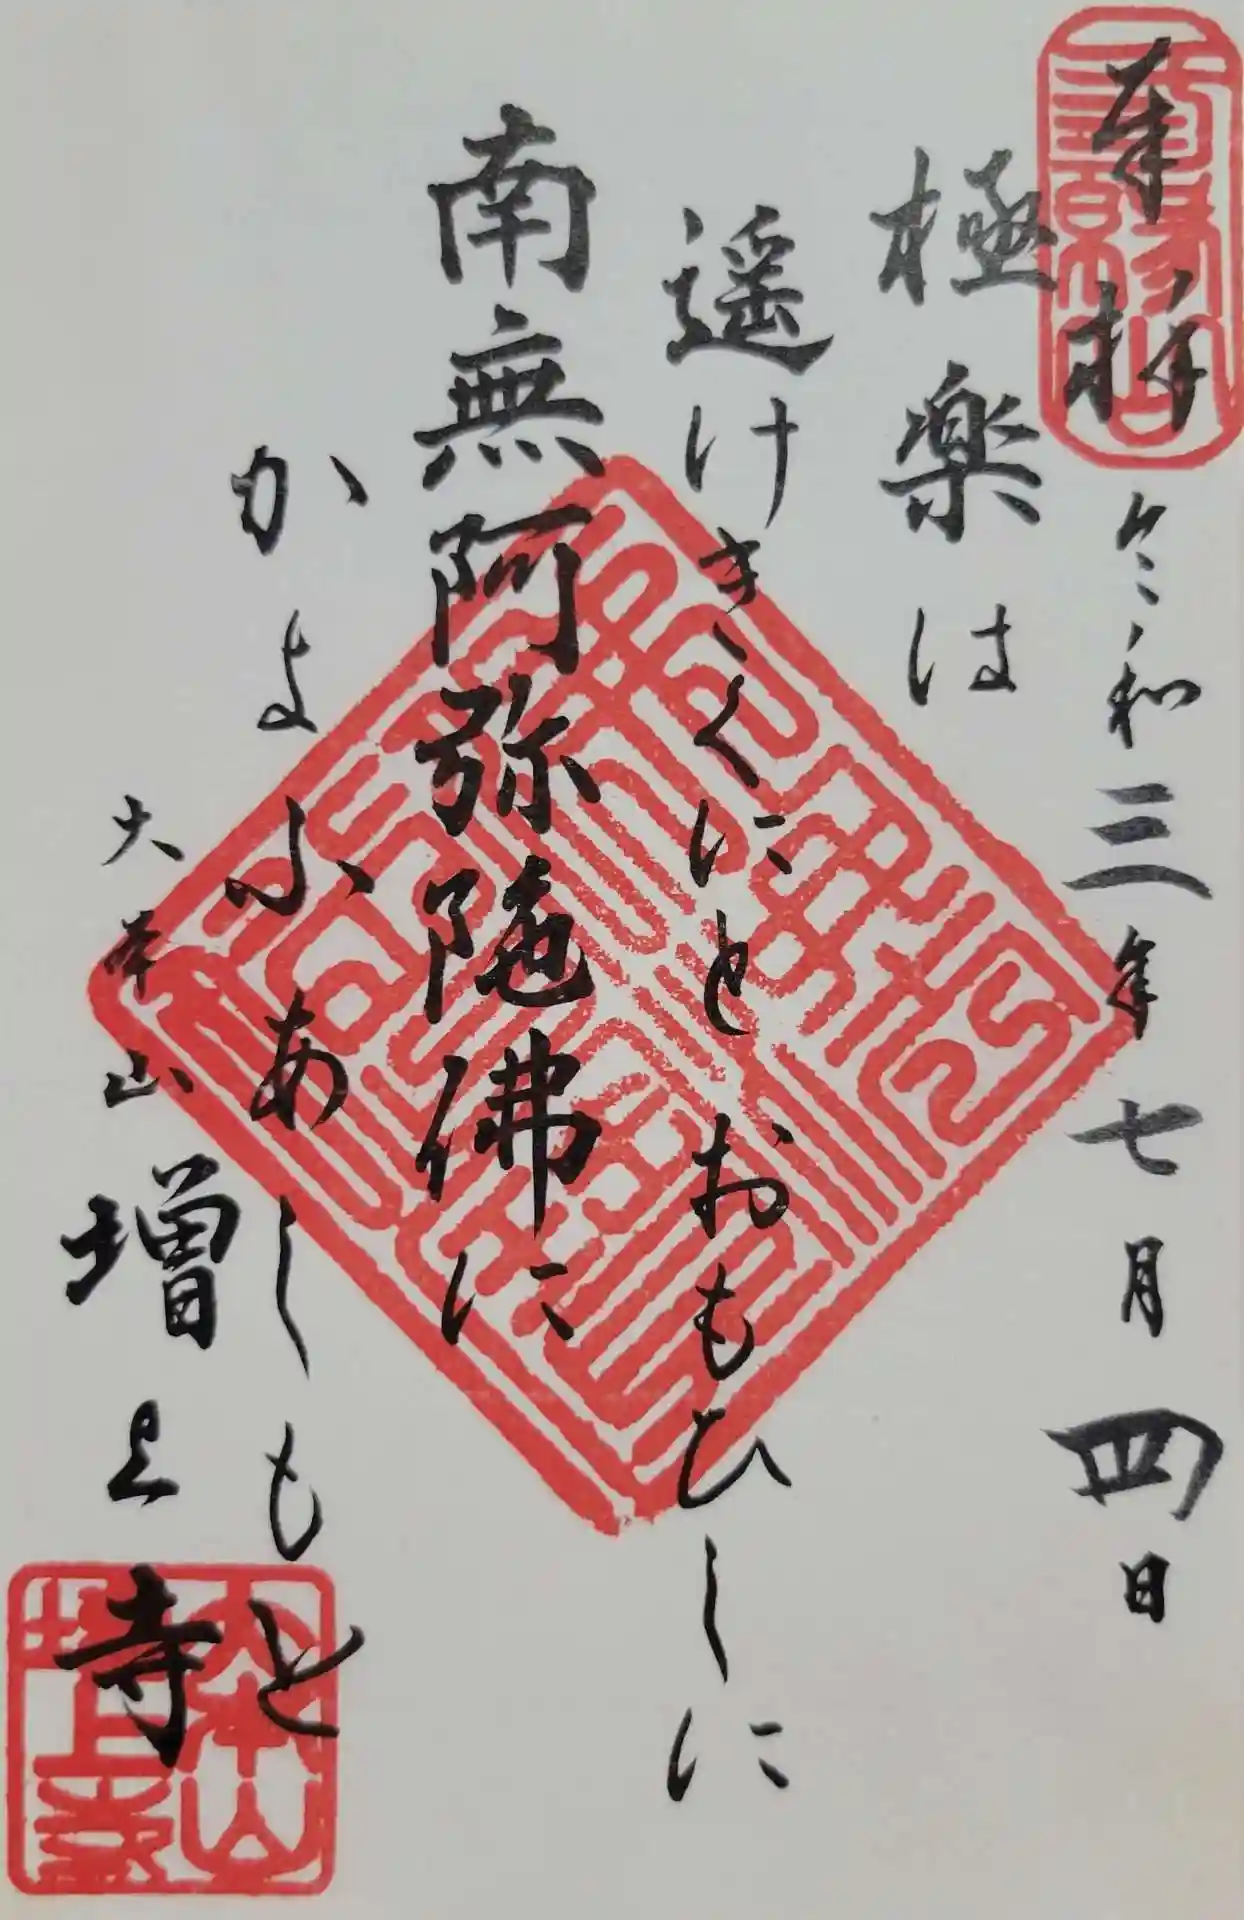 奉拝 令和三年七月四日
極楽は
遥けきくにとおもひしに
南無阿弥陀佛に
かよふあしもと
大本山増上寺
大本山
増上寺